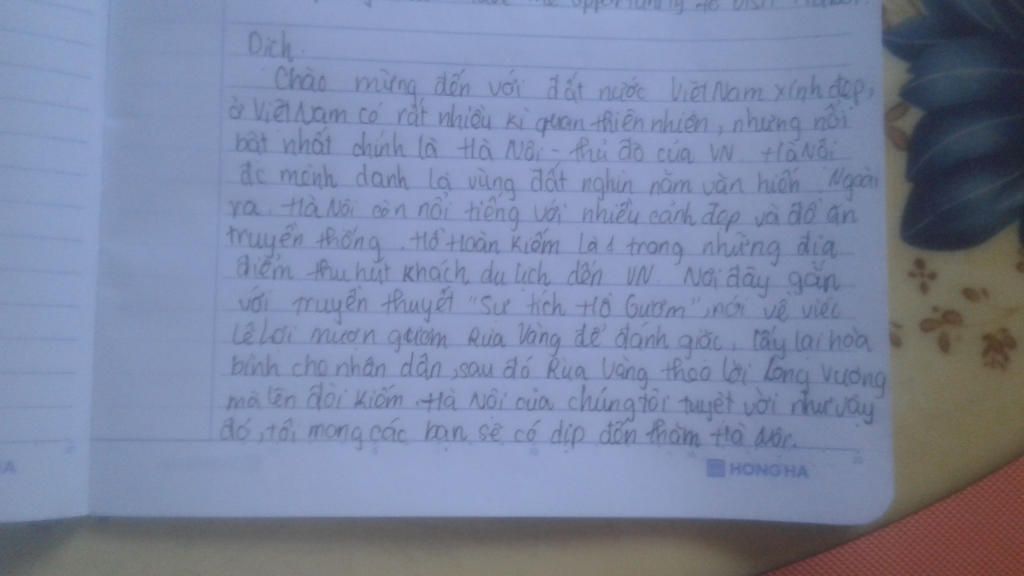 opportunity to visit
Dịch.
Chào mừng đến với đất nước Việt Nam xinh đẹp,
ở Việt Nam có rất nhiều kì quan thiên nhiên, nhưng nổi
bật nhất chính là Hà Nội - thủ đô của VN. Hà Nội
đc mệnh danh là vùng đất nghìn năm văn hiến. Ngoài
ra, Hà Nội còn nổi tiếng với nhiều cảnh đẹp và đồ ăn
truyền thống. Hồ Hoàn Kiếm là 1 trong những địa
điểm thu hút khách du lịch đến VN. Nơi đây gắn
với truyền thuyết "Sự tích Hồ Gươm", nói về việc
Lê Lợi mượn gươm Rùa Vàng để đánh giặc, lấy lại hòa
bình cho nhân dân, sau đó Rùa Vàng theo lời Long Vương
mà lên đòi kiếm. Hà Nội của chúng tôi tuyệt vời như vậy
đó, tôi mong các bạn sẽ có dịp đến thăm Hà Nội.
HONG HA